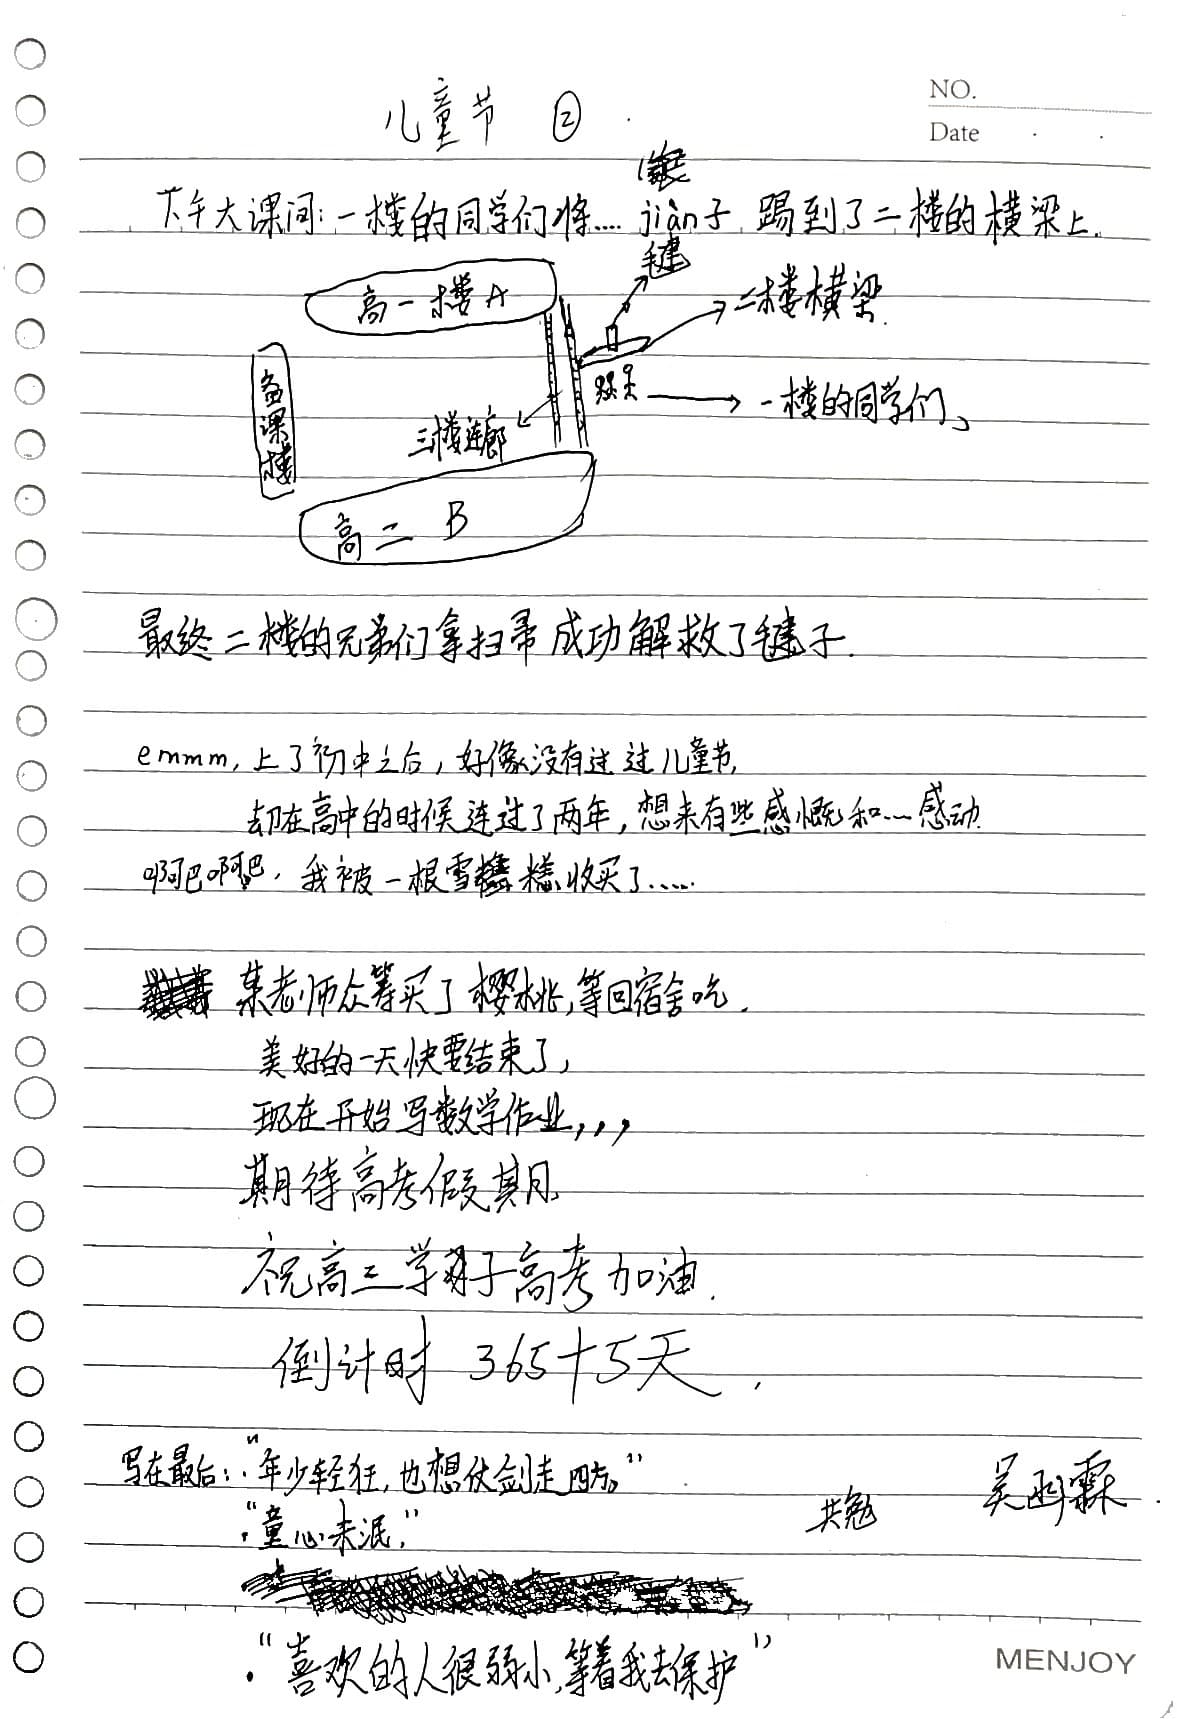 NO.
Date
儿童节 ②
下午大课间:一楼的同学们将.... jiàn子 踢到了二楼的横梁上.
毽
高一楼A
二楼横梁
备课楼
一楼的同学们、
三楼连廊
高二 B
最终二楼的兄弟们拿扫帚成功解救了毽子.
emmm,上了初中之后,好像没有过过儿童节,
却在高中的时候连过了两年,想来有些感慨和……感动.
啊吧啊吧,我被一根雪糕收买了……
某老师众筹买了樱桃,等回宿舍吃.
美好的一天快要结束了,
现在开始写数学作业,,,
期待高考假期.
祝高三学子高考加油.
倒计时 365+5天.
写在最后:·"年少轻狂,也想仗剑走四方。"
·"童心未泯,"
共勉
·"喜欢的人很弱小,等着我去保护"
MENJOY